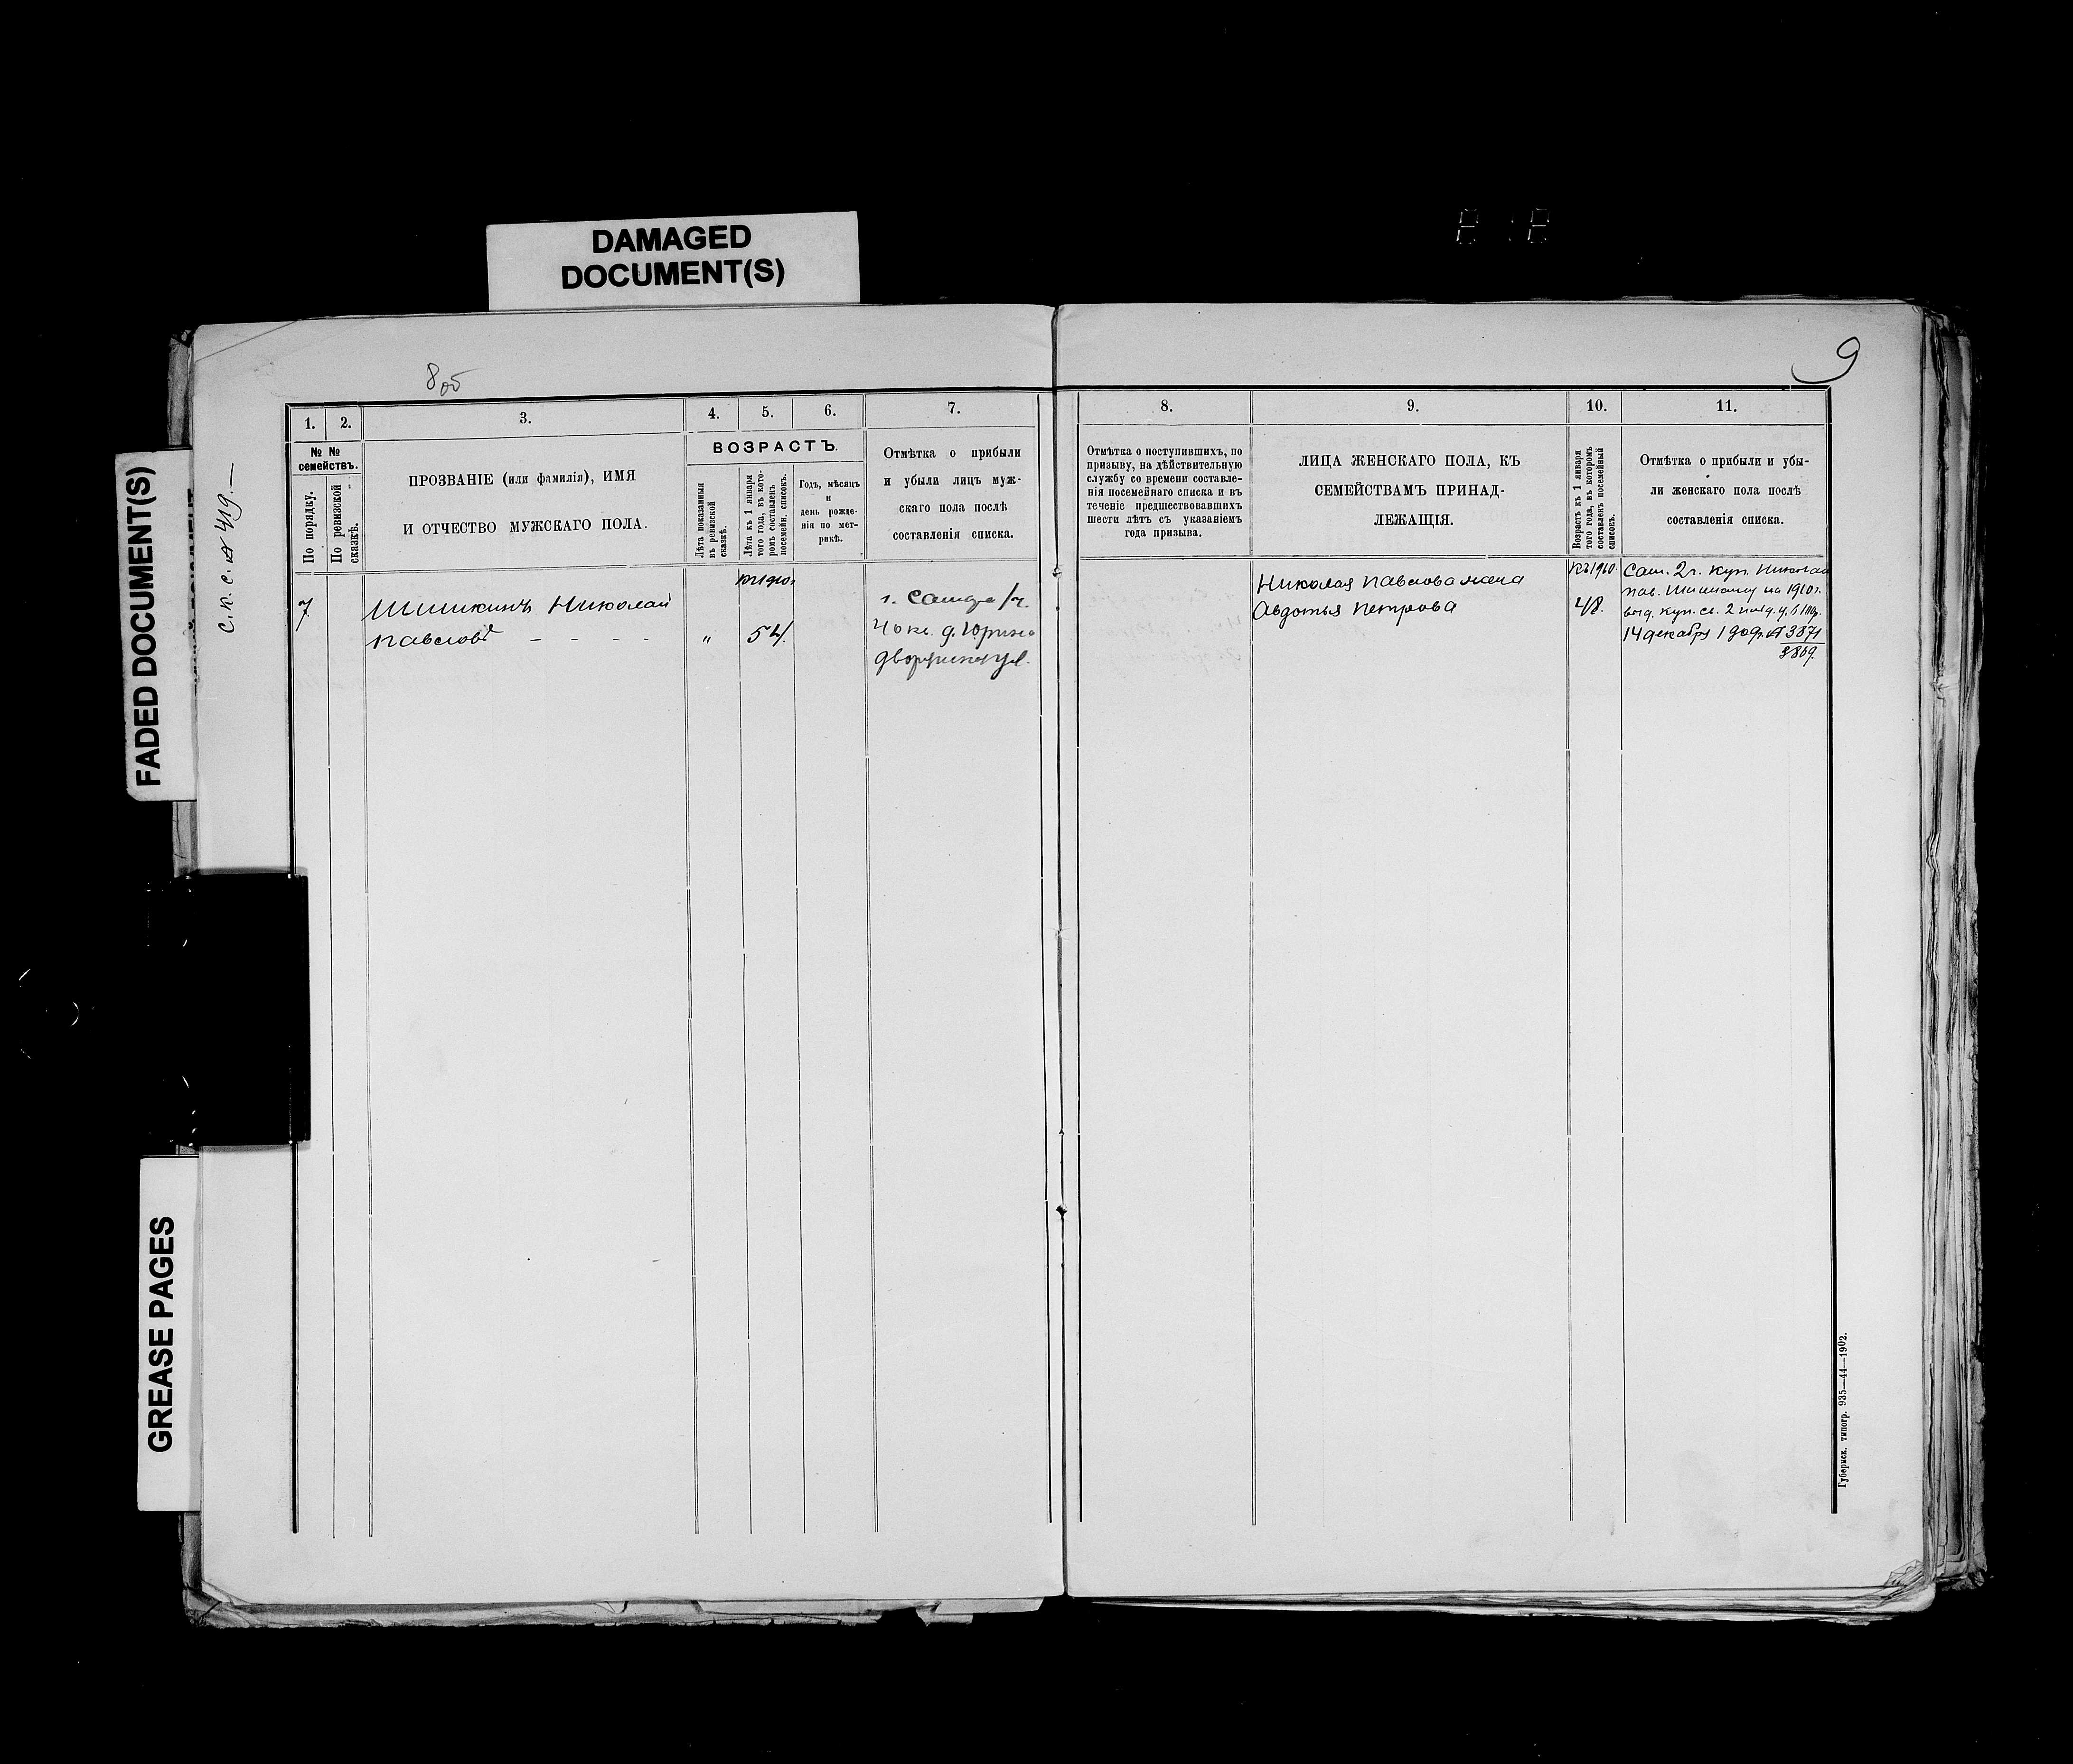 DAMAGED
DOCUMENT(S)
FADED DOCUMENT(S)
GREASE PAGES
С. К. С. № 419.—
8об
9
1.
2.
3.
4.
5.
6.
7.
№ №
семействъ.
По порядку.
По ревизской
сказкѣ.
ПРОЗВАНІЕ (или фамилія), ИМЯ
И ОТЧЕСТВО МУЖСКАГО ПОЛА.
ВОЗРАСТЪ.
Лѣта показанныя
въ ревизской
сказкѣ.
Лѣта къ 1 января
того года, въ кото-
ромъ составленъ
посемейн. списокъ.
Годъ, мѣсяцъ
и
день рожде-
нія по мет-
рикѣ.
Отмѣтка о прибыли
и убыли лицъ муж-
скаго пола послѣ
составленія списка.
7
Шишкинъ Николай
Павловъ - - - -
къ 1910.
„ 54.
г.
4о кв. д.
8.
9.
10.
11.
Отмѣтка о поступившихъ, по
призыву, на дѣйствительную
службу со времени составле-
нія посемейнаго списка и въ
теченіе предшествовавшихъ
шести лѣтъ съ указаніемъ
года призыва.
ЛИЦА ЖЕНСКАГО ПОЛА, КЪ
СЕМЕЙСТВАМЪ ПРИНАД-
ЛЕЖАЩІЯ.
Возрастъ къ 1 января
того года, въ которомъ
составленъ посемейный
списокъ.
Отмѣтка о прибыли и убы-
ли женскаго пола послѣ
составленія списка.
Николая Павлова жена
Авдотья Петрова
къ 1910.
48.
Сам. 2 г. куп. Николаю
Пав. Шишкину на 1910 г.
выд. куп. св. 2
14 декабря 1909 г. № 3871
3869.
Губернск. типогр. 935—44—1902.